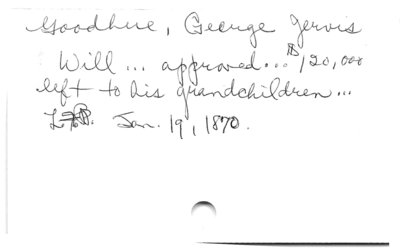 Goodhue, George Jervis
Will ... approved ... $120,000
left to his grandchildren ...
Jan. 19, 1870.